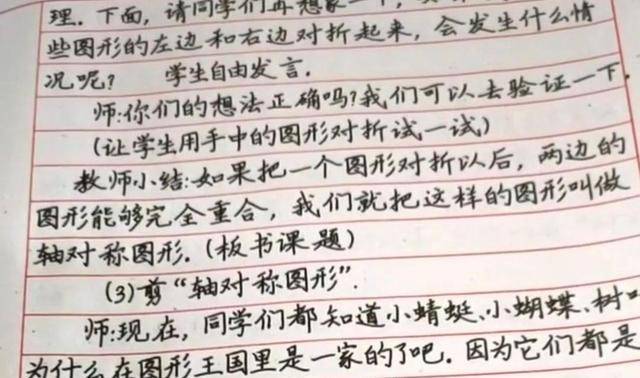 理。下面，请同学们再想象一下，
些图形的左边和右边对折起来，会发生什么情
况呢？ 学生自由发言.
师:你们的想法正确吗?我们可以去验证一下.
(让学生用手中的图形对折试一试)
教师小结:如果把一个图形对折以后，两边的
图形能够完全重合，我们就把这样的图形叫做
轴对称图形.(板书课题)
(3)剪“轴对称图形”.
师:现在，同学们都知道小蜻蜓、小蝴蝶、树叶
为什么在图形王国里是一家的了吧。因为它们都是